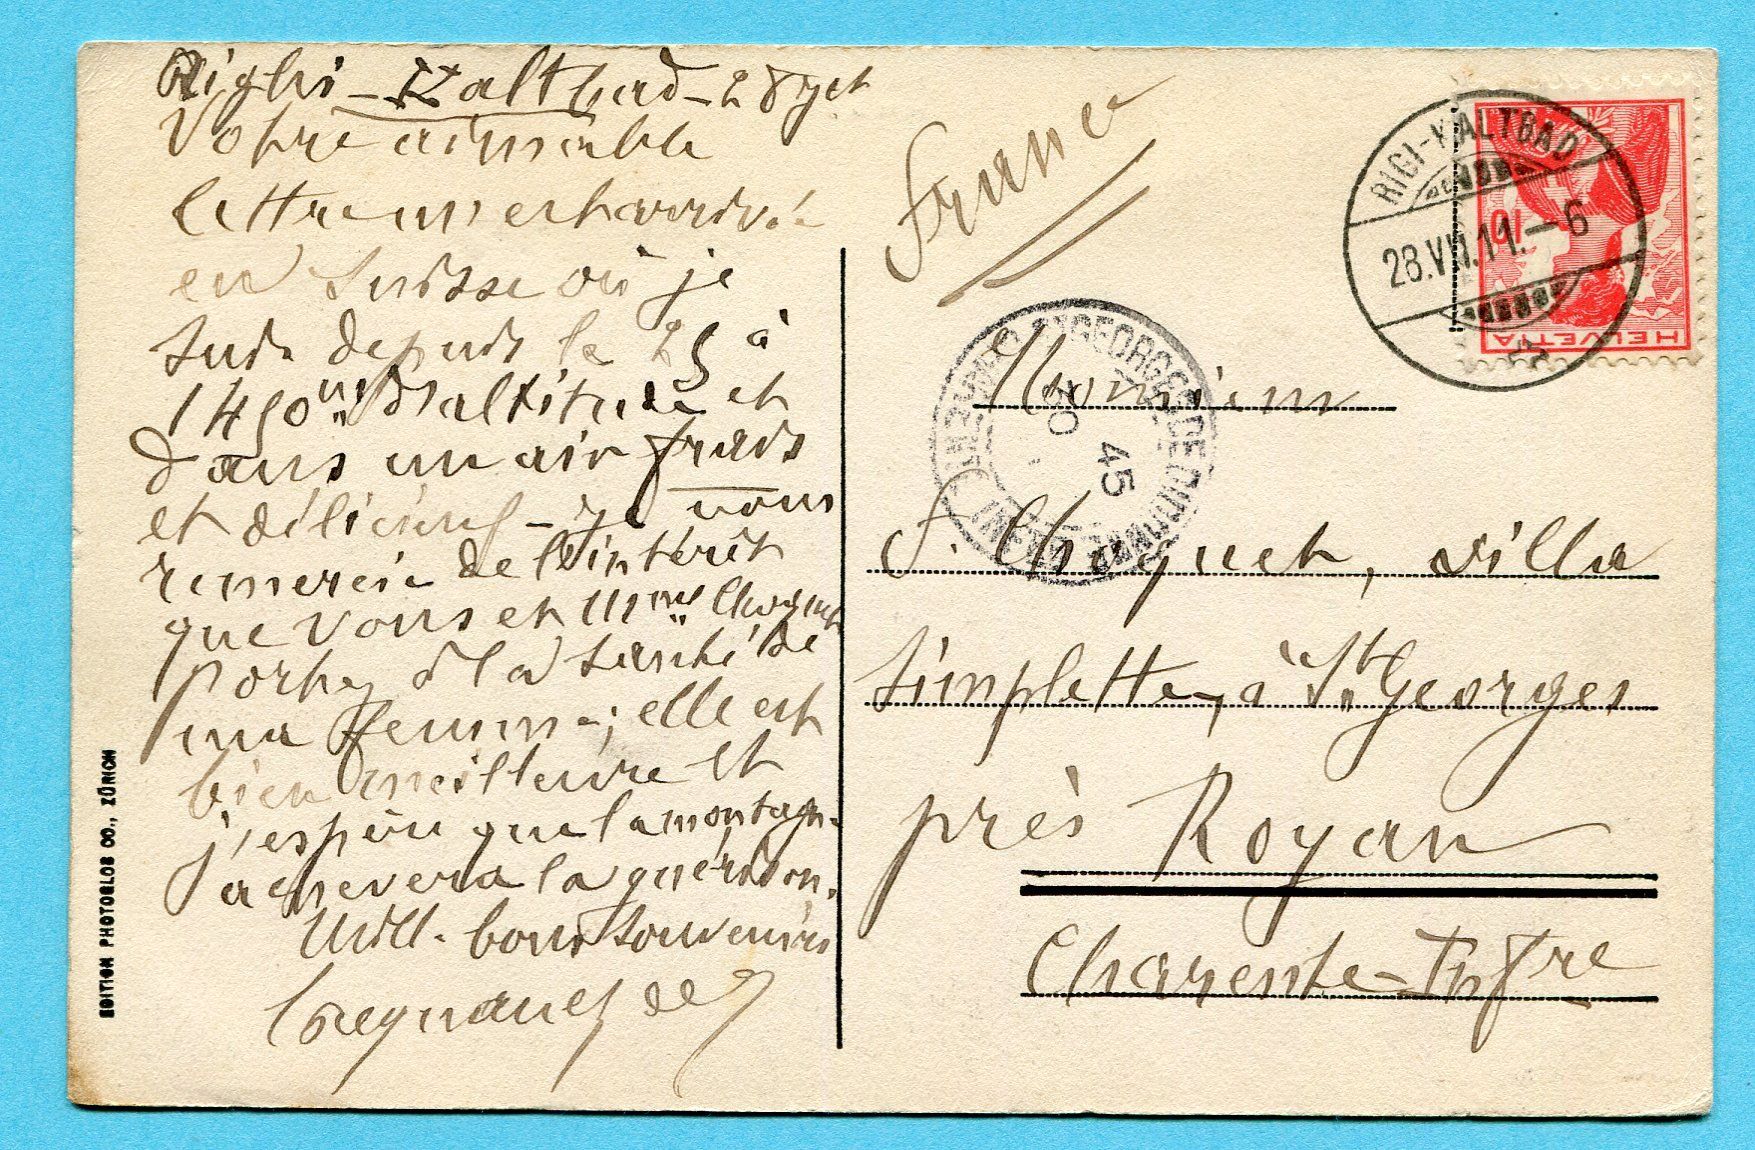 Righi-Kaltbad-28 Jet
Votre aimable
lettre m'est arrivée
en Suisse où je
suis depuis le 25 à
1450 m d'altitude et
dans un air frais
et délicieux - je vous
remercie de l'intérêt
que vous et Mme Choquet
portez à la santé de
ma femme; elle est
bien meilleure et
j'espère que la montagne
achevera la guérison.
Mill. bons souvenirs
France
Monsieur
F. Choquet, villa
Simplette, à St Georges
près Royan
Charente-Infre
RIGI-KALTBAD
28.VIII.11.-6
10
HELVETIA
ST GEORGES DE DIDONNE
CHARENTE INFRE
30
45
EDITION PHOTOGLOB CO., ZÜRICH